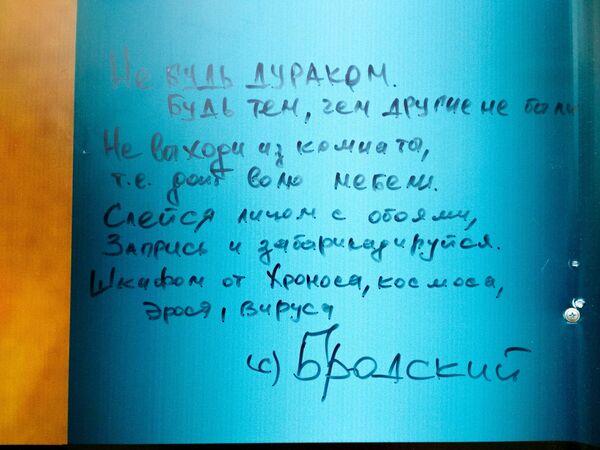 Не будь дураком.
Будь тем, чем другие не были
Не выходи из комнаты,
т.е. дай волю мебели.
Слейся лицом с обоями,
Запрись и забарикадируйся.
Шкафом от Хроноса, космоса,
Эроса, Вируса
(с) Бродский